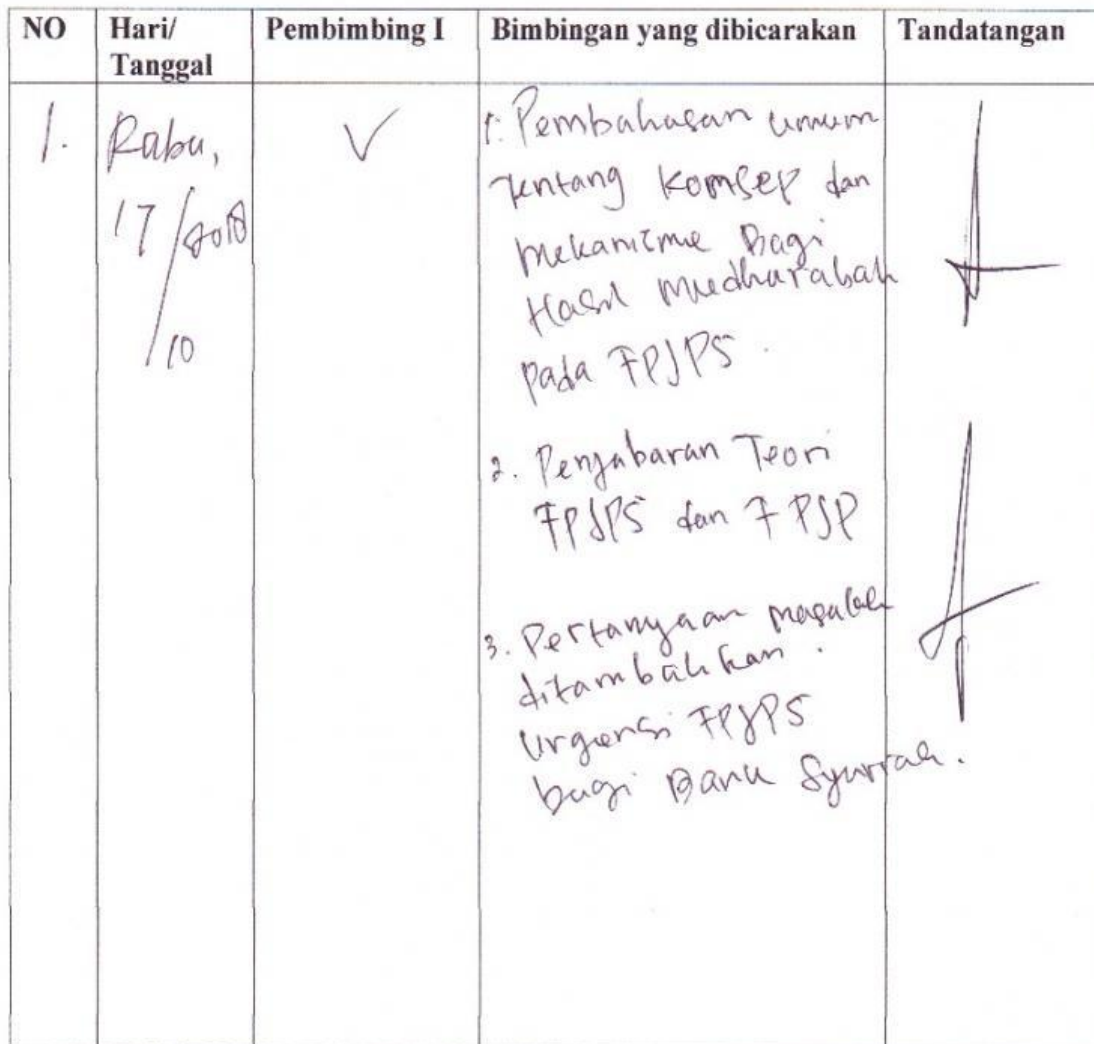 NO Hari/ Pembimbing I Bimbingan yang dibicarakan Tandatangan
Tanggal
1. Rabu, √ 1. Pembahasan umum
17/2018 tentang Komsep dan
/10 mekanisme Bagi
Hasil mudharabah
pada FPJPS.
2. Penjabaran Teori
FPJPS dan FPJP
3. Pertanyaan masalah
ditambahkan.
Urgensi FPJPS
bagi Bank Syariah.